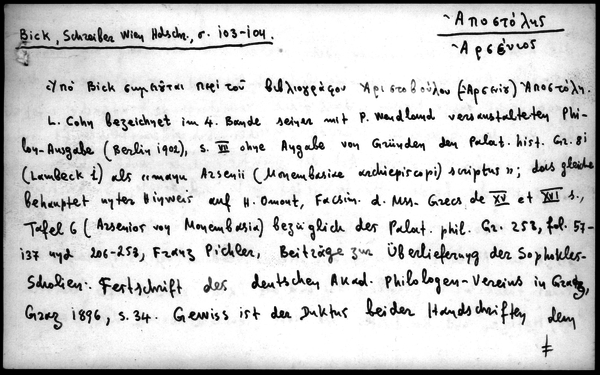 Ἀποστόλης
Bick, Schreiber Wien Hdschr., σ. 103-104.
Ἀρσένιος
Ὑπὸ Bick σημειοῦται περὶ τοῦ βιβλιογράφου Ἀριστοβούλου (Ἀρσενίου) Ἀποστόλη.
L. Cohn bezeichnet im 4. Bande seiner mit P. Wendland veranstalteten Phi-
lon-Ausgabe (Berlin 1902), S. VII ohne Angabe von Gründen den Palat. hist. Gr. 81
(Lambeck 1) als «manu Arsenii (Monembasiae archiepiscopi) scriptus»; das gleiche
behauptet unter Hinweis auf H. Omont, Facsim. d. Mss. Grecs de XV et XVI s.,
Tafel 6 (Arsenios von Monembasia) bezüglich des Palat. phil. Gr. 253, fol. 57-
137 und 206-253, Franz Pichler, Beiträge zur Überlieferung der Sophokles-
Scholien. Festschrift des deutschen Akad. Philologen-Vereins in Graz,
Graz 1896, S. 34. Gewiss ist der Duktus beider Handschriften dem